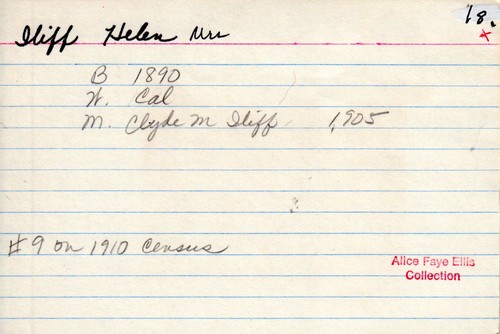 18.
x
Iliff Helen Mrs
B 1890
W. Cal
M. Clyde M Iliff 1905
#9 on 1910 Census
Alice Faye Ellis
Collection